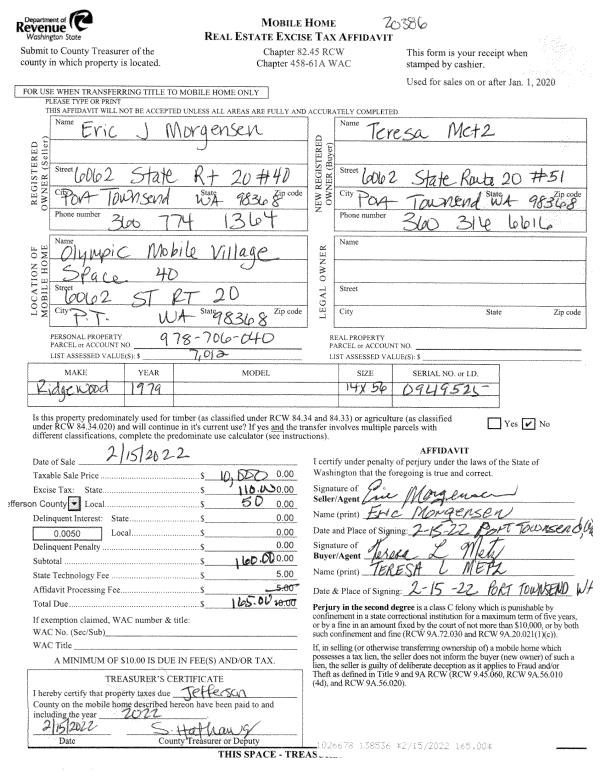 Department of
Revenue
Washington State
MOBILE HOME
REAL ESTATE EXCISE TAX AFFIDAVIT
20386
Submit to County Treasurer of the
county in which property is located.
Chapter 82.45 RCW
Chapter 458-61A WAC
This form is your receipt when
stamped by cashier.
Used for sales on or after Jan. 1, 2020
FOR USE WHEN TRANSFERRING TITLE TO MOBILE HOME ONLY
PLEASE TYPE OR PRINT
THIS AFFIDAVIT WILL NOT BE ACCEPTED UNLESS ALL AREAS ARE FULLY AND ACCURATELY COMPLETED.
REGISTERED OWNER (Seller)
Name Eric J Morgensen
Street 6062 State Rt 20 #40
City Port Townsend State WA 98368 Zip code
Phone number 360 774 1364
NEW REGISTERED OWNER (Buyer)
Name Teresa Metz
Street 6062 State Route 20 #51
City Port Townsend State WA 98368 Zip code
Phone number 360 316 6616
LOCATION OF MOBILE HOME
Name Olympic Mobile Village
Space 40
Street 6062 ST RT 20
City P.T. State WA 98368 Zip code
LEGAL OWNER
Name
Street
City State Zip code
PERSONAL PROPERTY
PARCEL or ACCOUNT NO. 978-706-040
LIST ASSESSED VALUE(S): $ 7,012
REAL PROPERTY
PARCEL or ACCOUNT NO.
LIST ASSESSED VALUE(S): $
MAKE YEAR MODEL SIZE SERIAL NO. or I.D.
Ridgewood 1979 14x56 09419525
Is this property predominately used for timber (as classified under RCW 84.34 and 84.33) or agriculture (as classified
under RCW 84.34.020) and will continue in it's current use? If yes and the transfer involves multiple parcels with
different classifications, complete the predominate use calculator (see instructions).
Yes ✔ No
Date of Sale 2/15/2022
Taxable Sale Price $ 10,000 0.00
Excise Tax: State $ 110.00 0.00
efferson County Local $ 50 0.00
Delinquent Interest: State $ 0.00
0.0050 Local $ 0.00
Delinquent Penalty $ 0.00
Subtotal $ 160.00 0.00
State Technology Fee $ 5.00
Affidavit Processing Fee $ 5.00
Total Due $ 165.00 10.00
If exemption claimed, WAC number & title:
WAC No. (Sec/Sub)
WAC Title
A MINIMUM OF $10.00 IS DUE IN FEE(S) AND/OR TAX.
TREASURER'S CERTIFICATE
I hereby certify that property taxes due Jefferson
County on the mobile home described hereon have been paid to and
including the year 2022
2/15/2022 S. Hathaway
Date County Treasurer or Deputy
AFFIDAVIT
I certify under penalty of perjury under the laws of the State of
Washington that the foregoing is true and correct.
Signature of
Seller/Agent Eric Morgensen
Name (print) ERIC MORGENSEN
Date and Place of Signing: 2-15-22 PORT TOWNSEND,
Signature of
Buyer/Agent Teresa L Metz
Name (print) TERESA L METZ
Date & Place of Signing: 2-15-22 PORT TOWNSEND WA
Perjury in the second degree is a class C felony which is punishable by
confinement in a state correctional institution for a maximum term of five years,
or by a fine in an amount fixed by the court of not more than $10,000, or by both
such confinement and fine (RCW 9A.72.030 and RCW 9A.20.021(1)(c)).
If, in selling (or otherwise transferring ownership of) a mobile home which
possesses a tax lien, the seller does not inform the buyer (new owner) of such a
lien, the seller is guilty of deliberate deception as it applies to Fraud and/or
Theft as defined in Title 9 and 9A RCW (RCW 9.45.060, RCW 9A.56.010
(4d), and RCW 9A.56.020).
1026678 138536 *2/15/2022 165.00*
THIS SPACE - TREAS